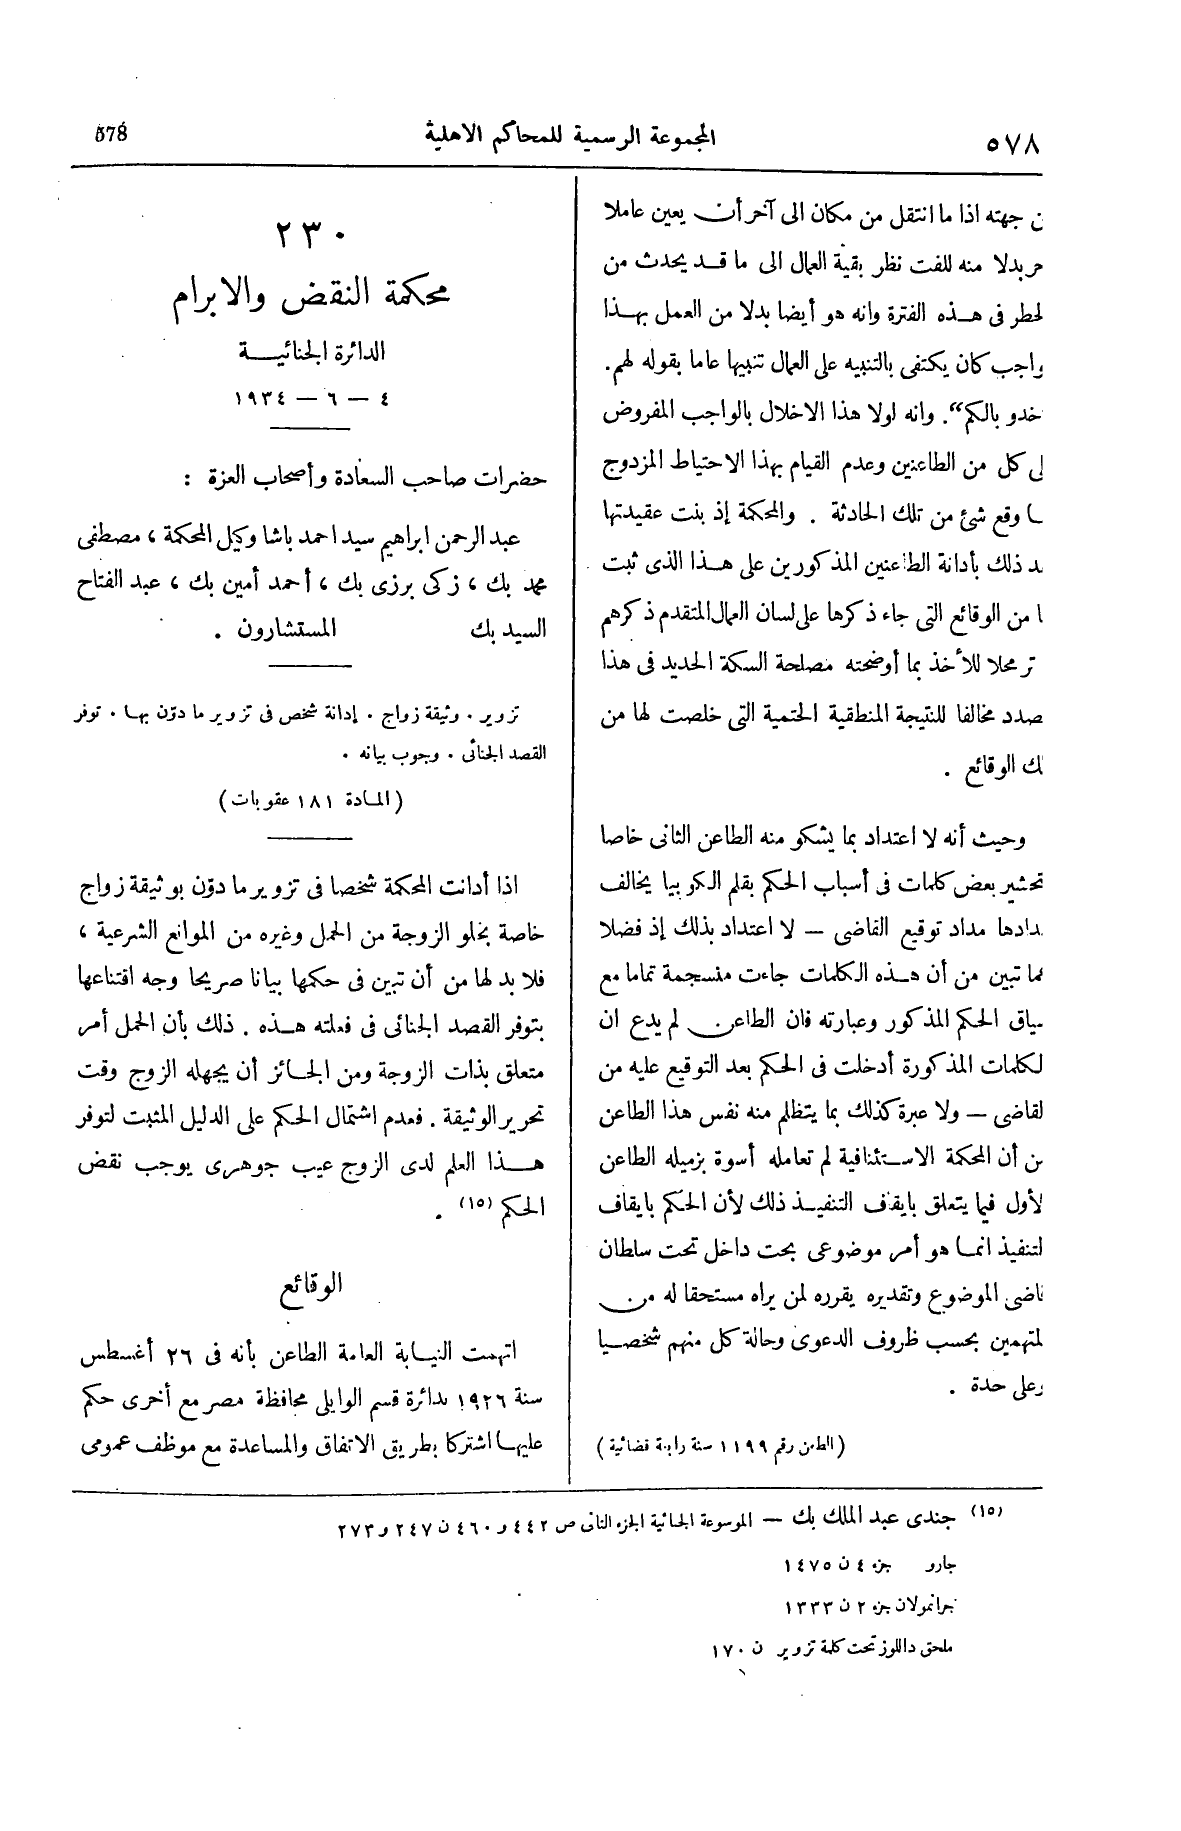 ٥٧٨
المجموعة الرسمية للمحاكم الاهلية
578
ن جهته اذا ما انتقل من مكان الى آخر أن يعين عاملا
خر بدلا منه للفت نظر بقية العمال الى ما قد يحدث من
لخطر فى هذه الفترة وانه هو أيضا بدلا من العمل بهذا
واجب كان يكتفى بالتنبيه على العمال تنبيها عاما بقوله لهم.
خدو بالكم“. وانه لولا هذا الاخلال بالواجب المفروض
لى كل من الطاعنين وعدم القيام بهذا الاحتياط المزدوج
ـا وقع شئ من تلك الحادثة . والمحكمة إذ بنت عقيدتها
ـد ذلك بأدانة الطاعنين المذكورين على هذا الذى ثبت
ا من الوقائع التى جاء ذكرها على لسان العمال المتقدم ذكرهم
تر محلا للأخذ بما أوضحته مصلحة السكة الحديد فى هذا
صدد مخالفا للنتيجة المنطقية الحتمية التى خلصت لها من
لك الوقائع .
وحيث أنه لا اعتداد بما يشكو منه الطاعن الثانى خاصا
تحشير بعض كلمات فى أسباب الحكم بقلم الكوبيا يخالف
ـدادها مداد توقيع القاضى — لا اعتداد بذلك إذ فضلا
ـما تبين من أن هذه الكلمات جاءت منسجمة تماما مع
ـياق الحكم المذكور وعبارته فان الطاعن لم يدع ان
لكلمات المذكورة أدخلت فى الحكم بعد التوقيع عليه من
لقاضى — ولا عبرة كذلك بما يتظلم منه نفس هذا الطاعن
ن أن المحكمة الاستئنافية لم تعامله أسوة بزميله الطاعن
لأول فيما يتعلق بايقاف التنفيذ ذلك لأن الحكم بايقاف
لتنفيذ انما هو أمر موضوعى بحت داخل تحت سلطان
قاضى الموضوع وتقديره يقرره لمن يراه مستحقا له من
لمتهمين بحسب ظروف الدعوى وحالة كل منهم شخصيا
وعلى حدة .
(الطعن رقم ١١٩٩ سنة رابعة قضائية)
٢٣٠
محكمة النقض والابرام
الدائرة الجنائية
٤ — ٦ — ١٩٣٤
حضرات صاحب السعادة وأصحاب العزة :
عبد الرحمن ابراهيم سيد احمد باشا وكيل المحكمة ، مصطفى
محمد بك ، زكى برزى بك ، أحمد أمين بك ، عبد الفتاح
السيد بك المستشارون .
تزوير . وثيقة زواج . إدانة شخص فى تزوير ما دوّن بها . توفر
القصد الجنائى . وجوب بيانه .
(المادة ١٨١ عقوبات)
اذا أدانت المحكمة شخصا فى تزوير ما دوّن بوثيقة زواج
خاصة بخلو الزوجة من الحمل وغيره من الموانع الشرعية ،
فلا بد لها من أن تبين فى حكمها بيانا صريحا وجه اقتناعها
بتوفر القصد الجنائى فى فعلته هذه . ذلك بأن الحمل أمر
متعلق بذات الزوجة ومن الجائز أن يجهله الزوج وقت
تحرير الوثيقة . فعدم اشتمال الحكم على الدليل المثبت لتوفر
هذا العلم لدى الزوج عيب جوهرى يوجب نقض
الحكم (١٥) .
الوقائع
اتهمت النيابة العامة الطاعن بأنه فى ٢٦ أغسطس
سنة ١٩٢٦ بدائرة قسم الوايلى محافظة مصر مع أخرى حكم
عليها اشتركا بطريق الاتفاق والمساعدة مع موظف عمومى
(١٥) جندى عبد الملك بك — الموسوعة الجنائية الجزء الثانى ص ٤٤٢ و ٤٦٠ ن ٢٤٧ و ٢٧٣
جارو جزء ٤ ن ١٤٧٥
جرانمولان جزء ٢ ن ١٣٣٣
ملحق داللوز تحت كلمة تزوير ن ١٧٠